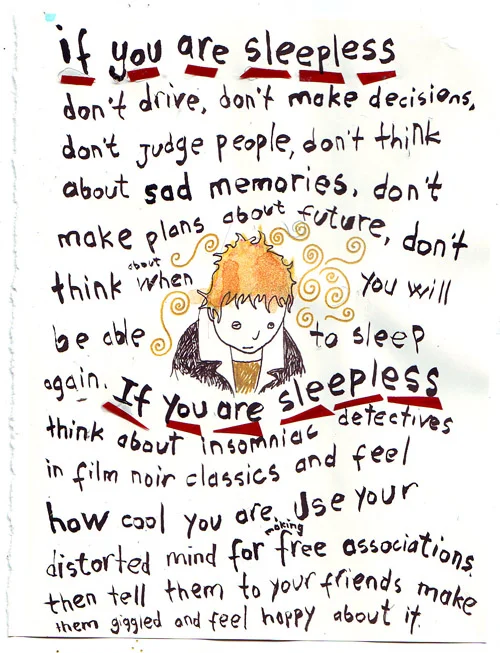 if you are sleepless
don't drive, don't make decisions,
don't judge people, don't think
about sad memories, don't
make plans about future, don't
think about when you will
be able to sleep
again. If you are sleepless
think about insomniac detectives
in film noir classics and feel
how cool you are. Use your
distorted mind for making free associations
then tell them to your friends make
them giggled and feel happy about it.